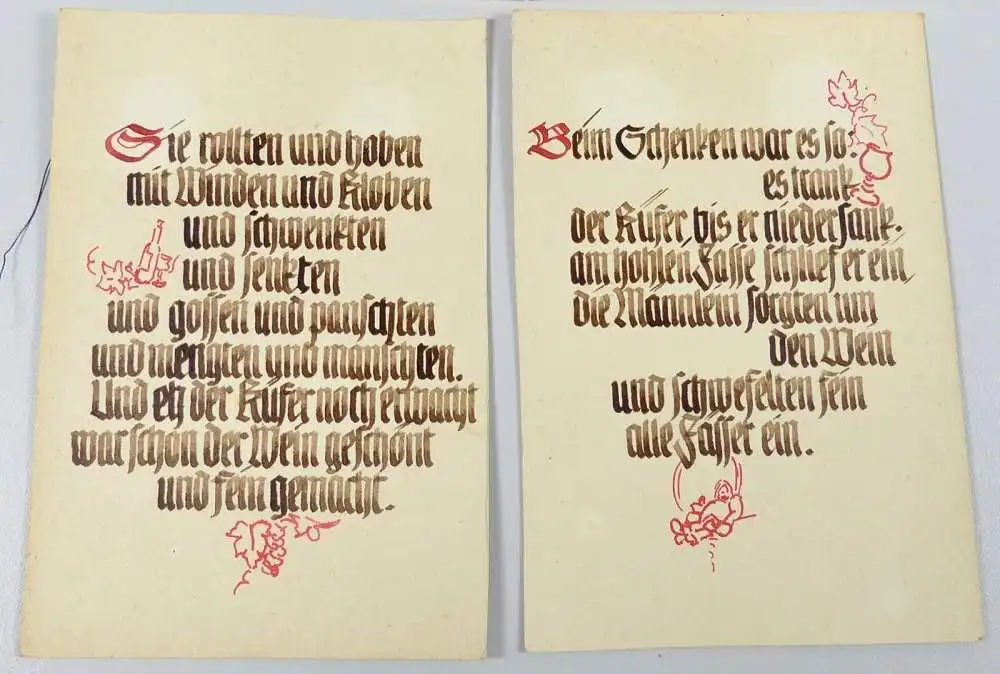 Sie rollten und hoben
mit Winden und Kloben
und schwenkten
und senkten
und gossen und panschten
und mengten und manschten.
Und eh der Küfer noch erwacht
war schon der Wein geschönt
und fein gemacht.
Beim Schenken war es so:
es trank
der Küfer, bis er niedersank.
am hohlen Fasse schlief er ein,
die Männlein sorgten um
den Wein
und schwefelten fein
alle Fässer ein.